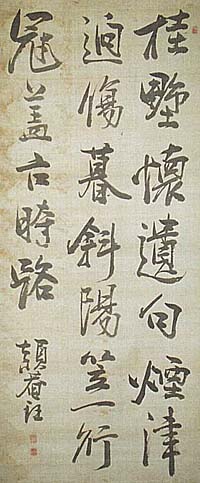 桂墅懷遺句煙津
逈傷暮斜陽笠一行
冠盖古時路